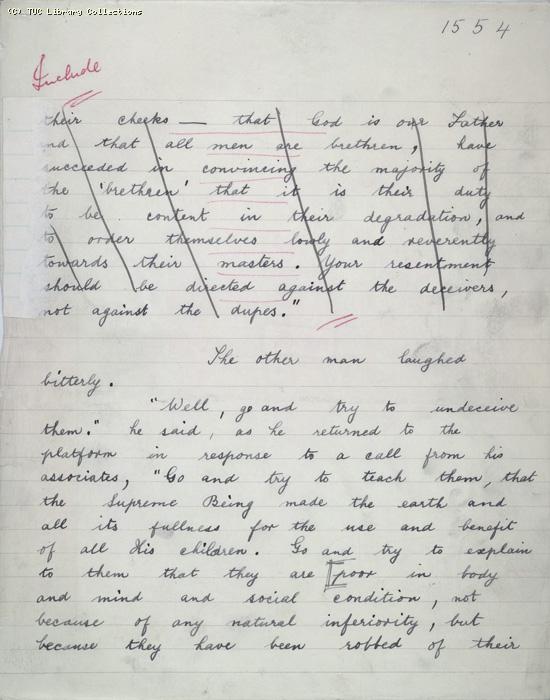 (C) TUC Library Collections
1554
Include
their cheeks — that God is our Father
and that all men are brethren, have
succeeded in convincing the majority of
the 'brethren' that it is their duty
to be content in their degradation, and
to order themselves lowly and reverently
towards their masters. Your resentment
should be directed against the deceivers,
not against the dupes."
The other man laughed
bitterly.
"Well, go and try to undeceive
them." he said, as he returned to the
platform in response to a call from his
associates, "Go and try to teach them, that
the Supreme Being made the earth and
all its fullness for the use and benefit
of all His children. Go and try to explain
to them that they are [poor in body
and mind and social condition, not
because of any natural inferiority, but
because they have been robbed of their